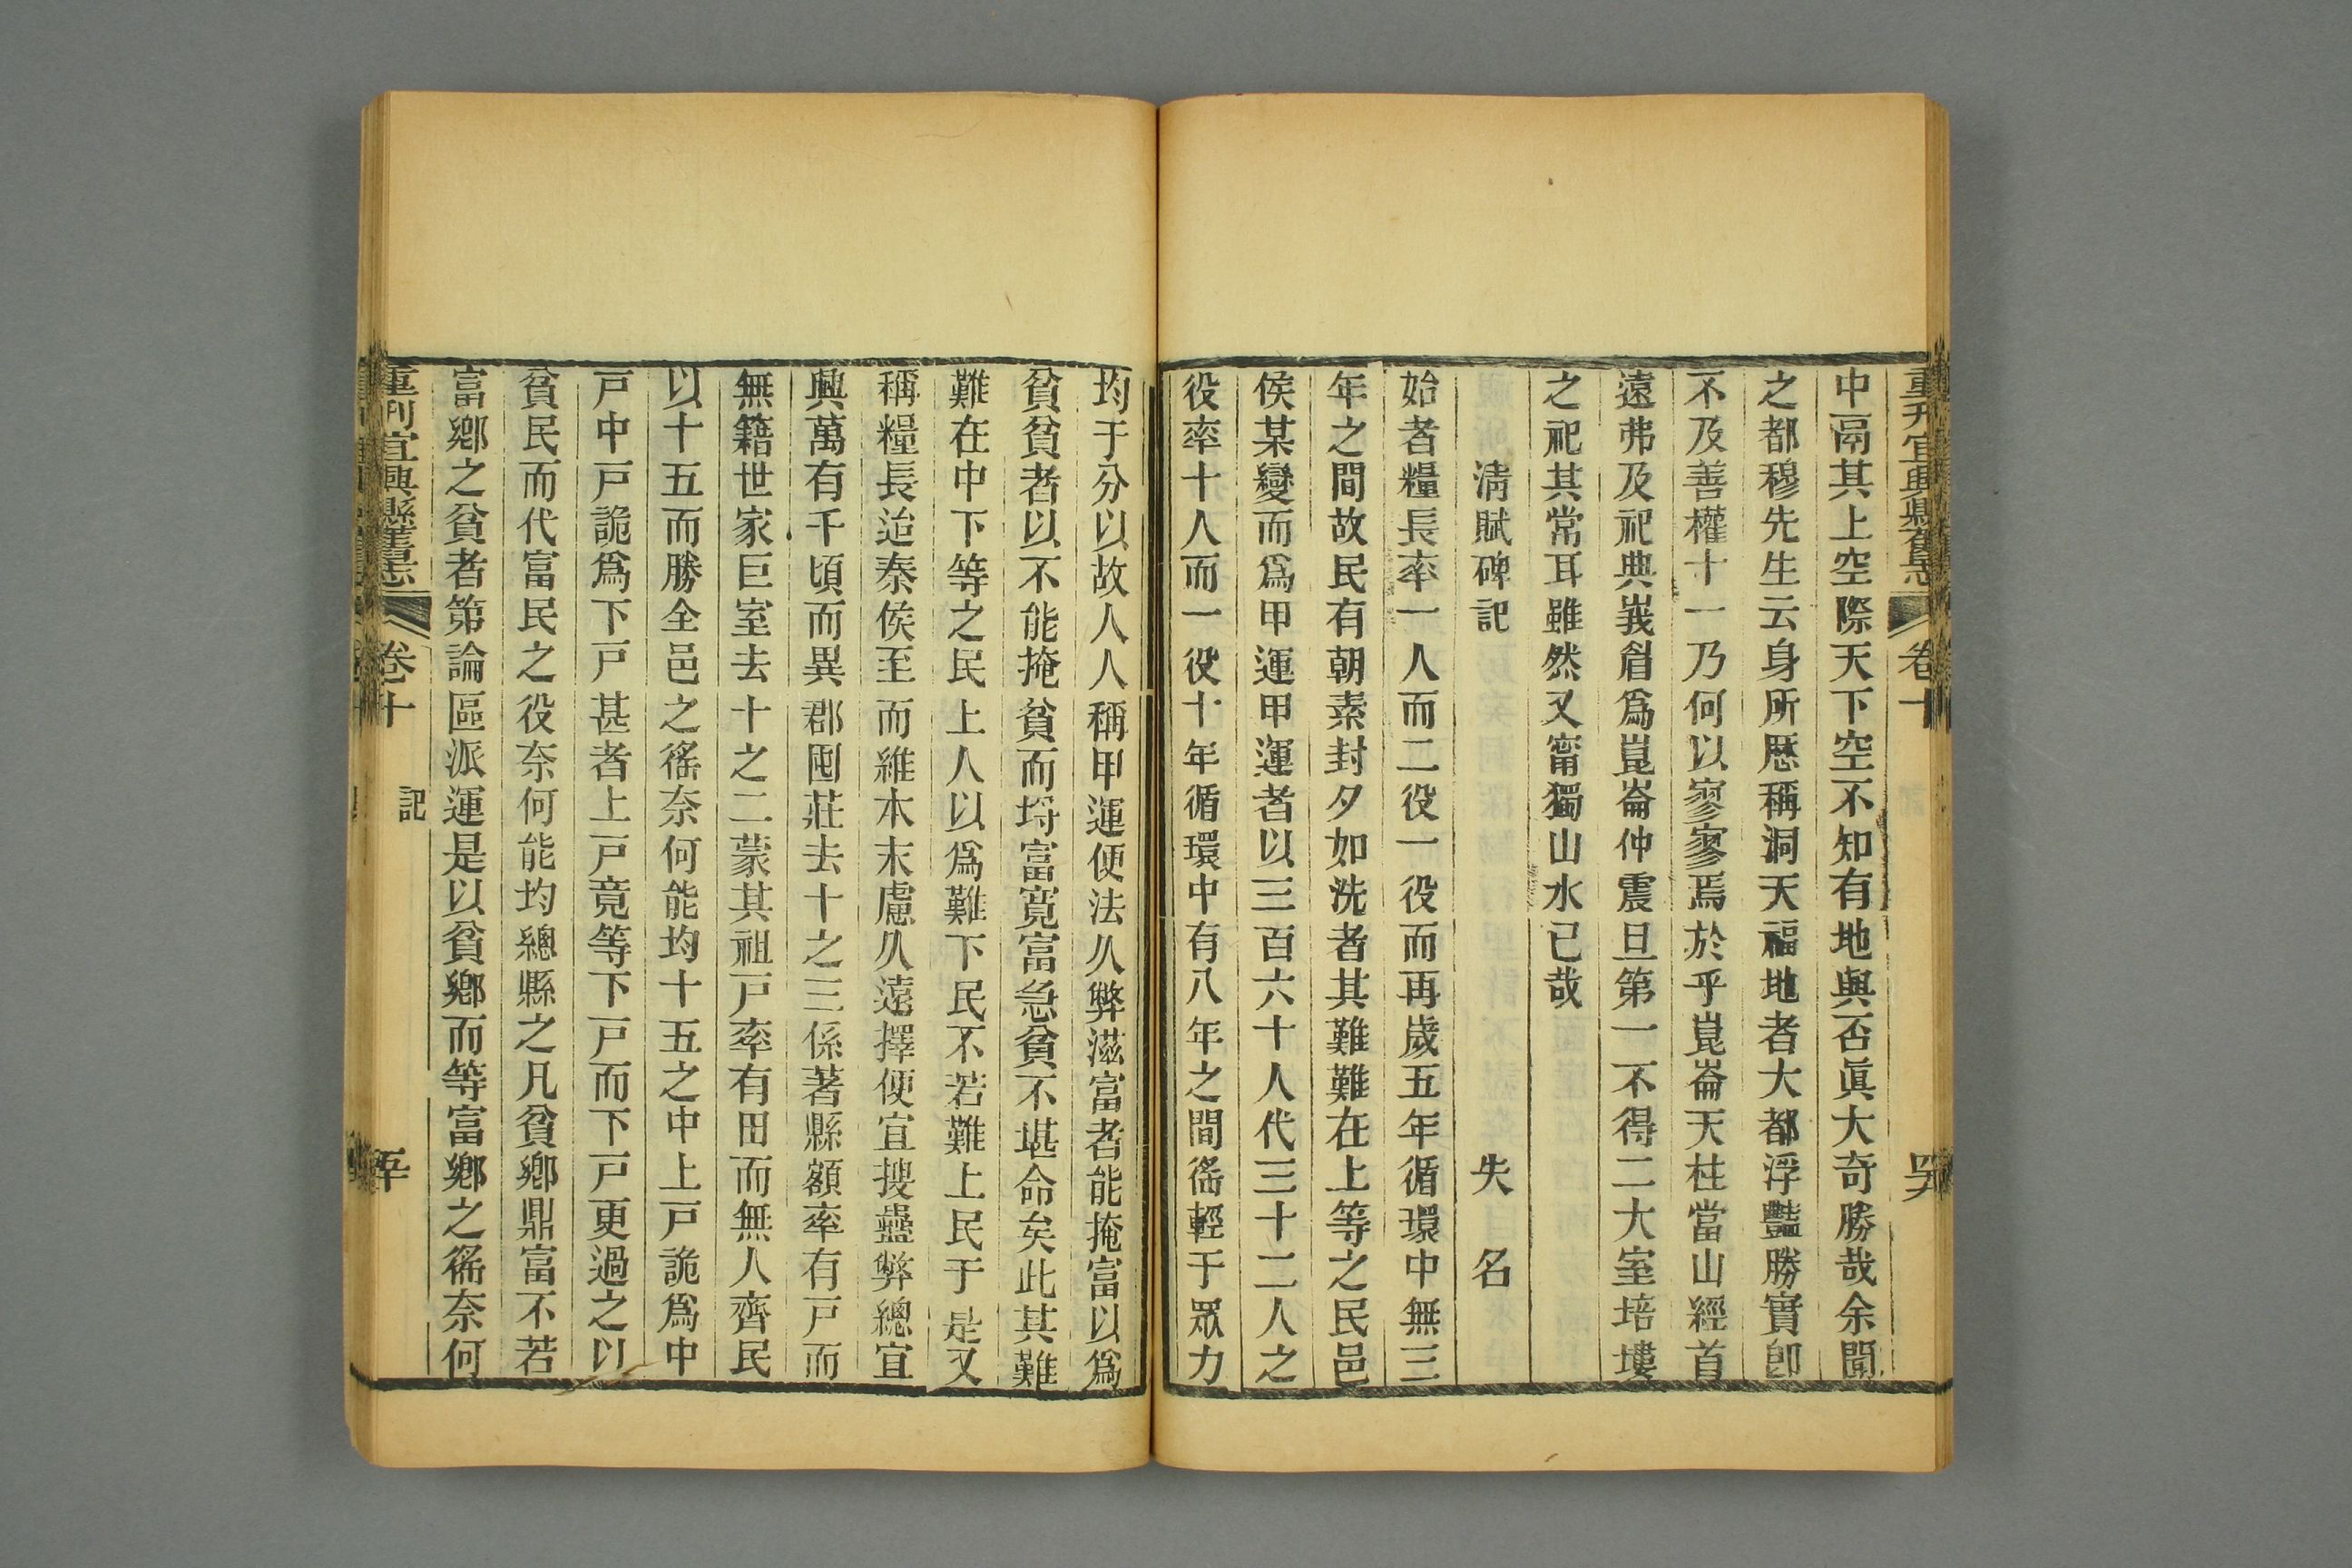 重刊宜興縣舊志 卷十 記
中鬲其上空際天下空不知有地與否眞大奇勝哉余聞
之都穆先生云身所歷稱洞天福地者大都浮豔勝實卽
不及善權十一乃何以寥寥焉於乎崑崙天柱當山經首
遠弗及祀典峩眉爲崑崙仲震旦第一不得二大室培塿
之祀其常耳雖然又甯獨山水已哉
清賦碑記 失名
始者糧長率一人而二役一役而再歲五年循環中無三
年之間故民有朝素封夕如洗者其難難在上等之民邑
侯某變而爲甲運甲運者以三百六十人代三十二人之
役率十人而一役十年循環中有八年之間徭輕于眾力
均于分以故人人稱甲運便法久弊滋富者能掩富以爲
貧貧者以不能掩貧而埒富寛富急貧不堪命矣此其難
難在中下等之民上人以爲難下民不若難上民于是又
稱糧長迨秦侯至而維本末慮久遠擇便宜搜蠱弊總宜
興萬有千頃而異郡圖莊去十之三係著縣額率有戸而
無籍世家巨室去十之二蒙其祖戸率有田而無人齊民
以十五而勝全邑之徭奈何能均十五之中上戸詭爲中
戸中戸詭爲下戸甚者上戸竟等下戸而下戸更過之以
貧民而代富民之役奈何能均總縣之凡貧鄉鼎富不若
富鄉之貧者第論區派運是以貧鄉而等富鄉之徭奈何
重刊宜興縣舊志 卷十 記